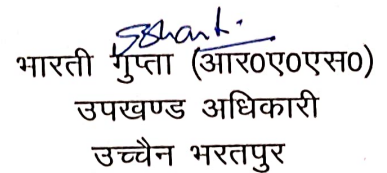 भारती गुप्ता (आर०ए०एस०)
उपखण्ड अधिकारी
उच्चैन भरतपुर